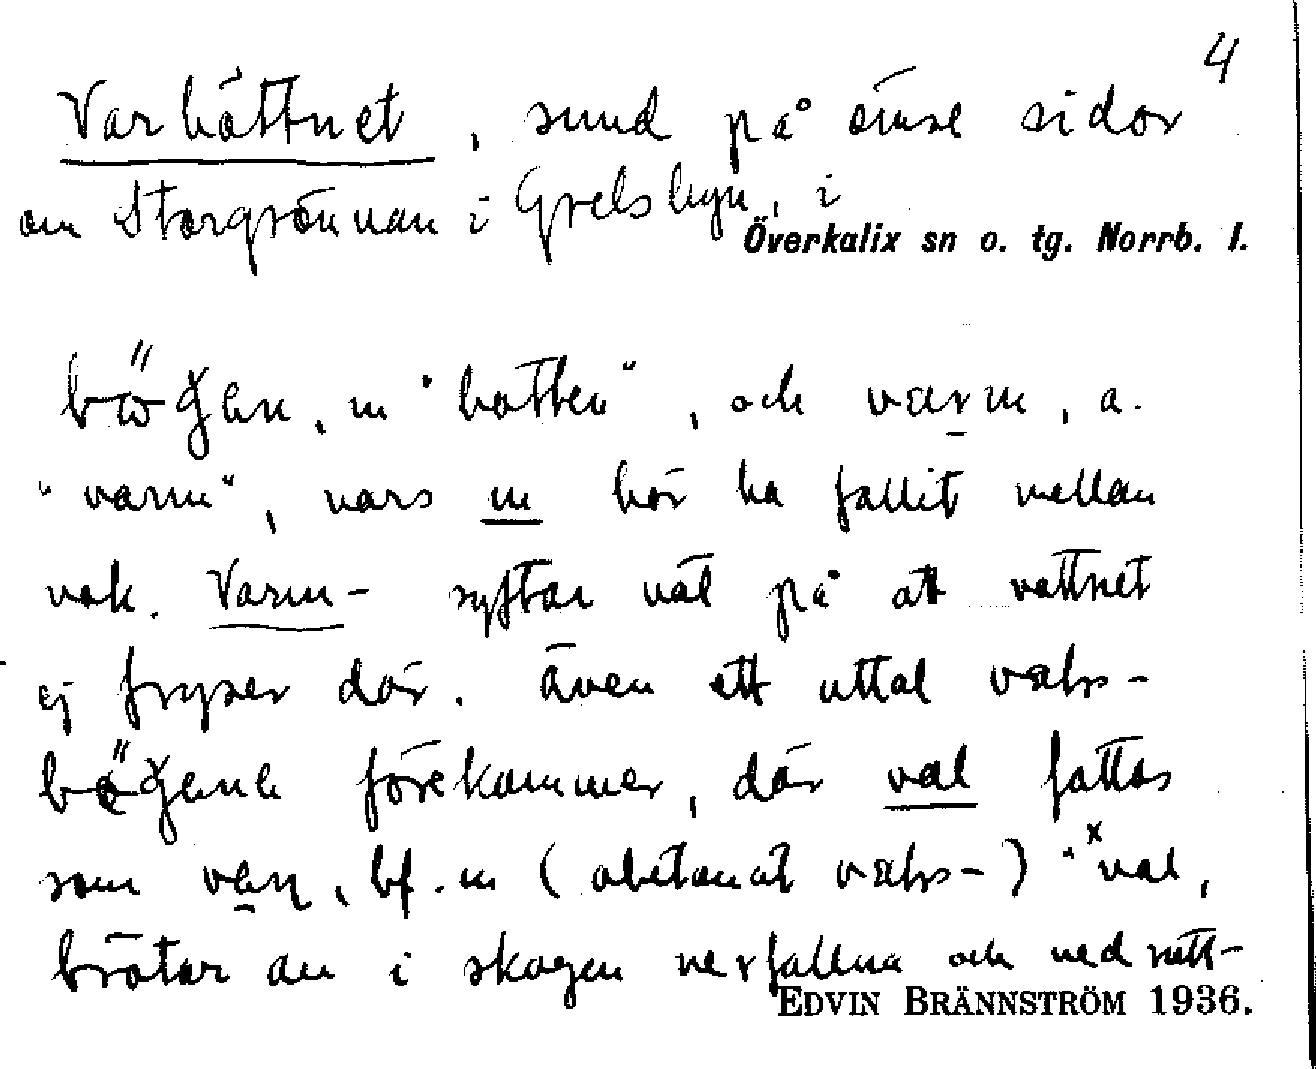 4
Varbåttnet, sund på ömse sidor
om Storgrönnan i Grelsbyn, i
Överkalix sn o. tg. Norrb. l.
m "botten", och varm, a.
"varm", vars m bör ha fallit mellan
vok. Varm- syftar väl på att vattnet
ej fryser där. Även ett uttal
förekommer, där val fattas
som bf. m (obetonat ) "ˣval,
brötar av i skogen nerfallna och nedrutt-
EDVIN BRÄNNSTRÖM 1936.